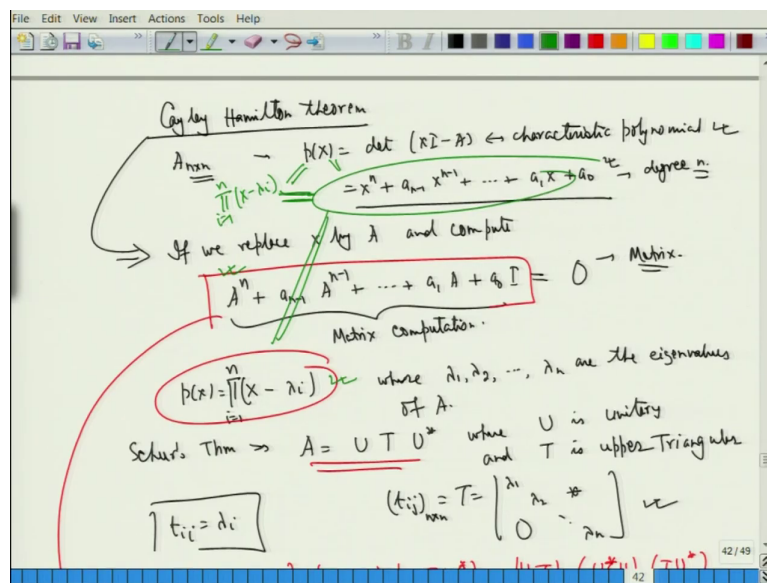 File Edit View Insert Actions Tools Help
B I
Cayley Hamilton theorem
A_{n×n} → p(x) = det (xI - A) ← characteristic polynomial
∏_{i=1}^{n} (x-λi) = x^n + a_{n-1} x^{n-1} + ... + a_1 x + a_0 → degree n.
⇒ If we replace x by A and compute
A^n + a_{n-1} A^{n-1} + ... + a_1 A + a_0 I = 0 → Matrix.
Matrix computation.
p(x) = ∏_{i=1}^{n} (x - λi) where λ1, λ2, ..., λn are the eigenvalues
of A.
Schur's Thm ⇒ A = U T U* where U is unitary
and T is upper Triangular
t_{ii} = λi
(tij)_{n×n} = T = [λ1 λ2 * 0 ⋱ λn]
42/49
42